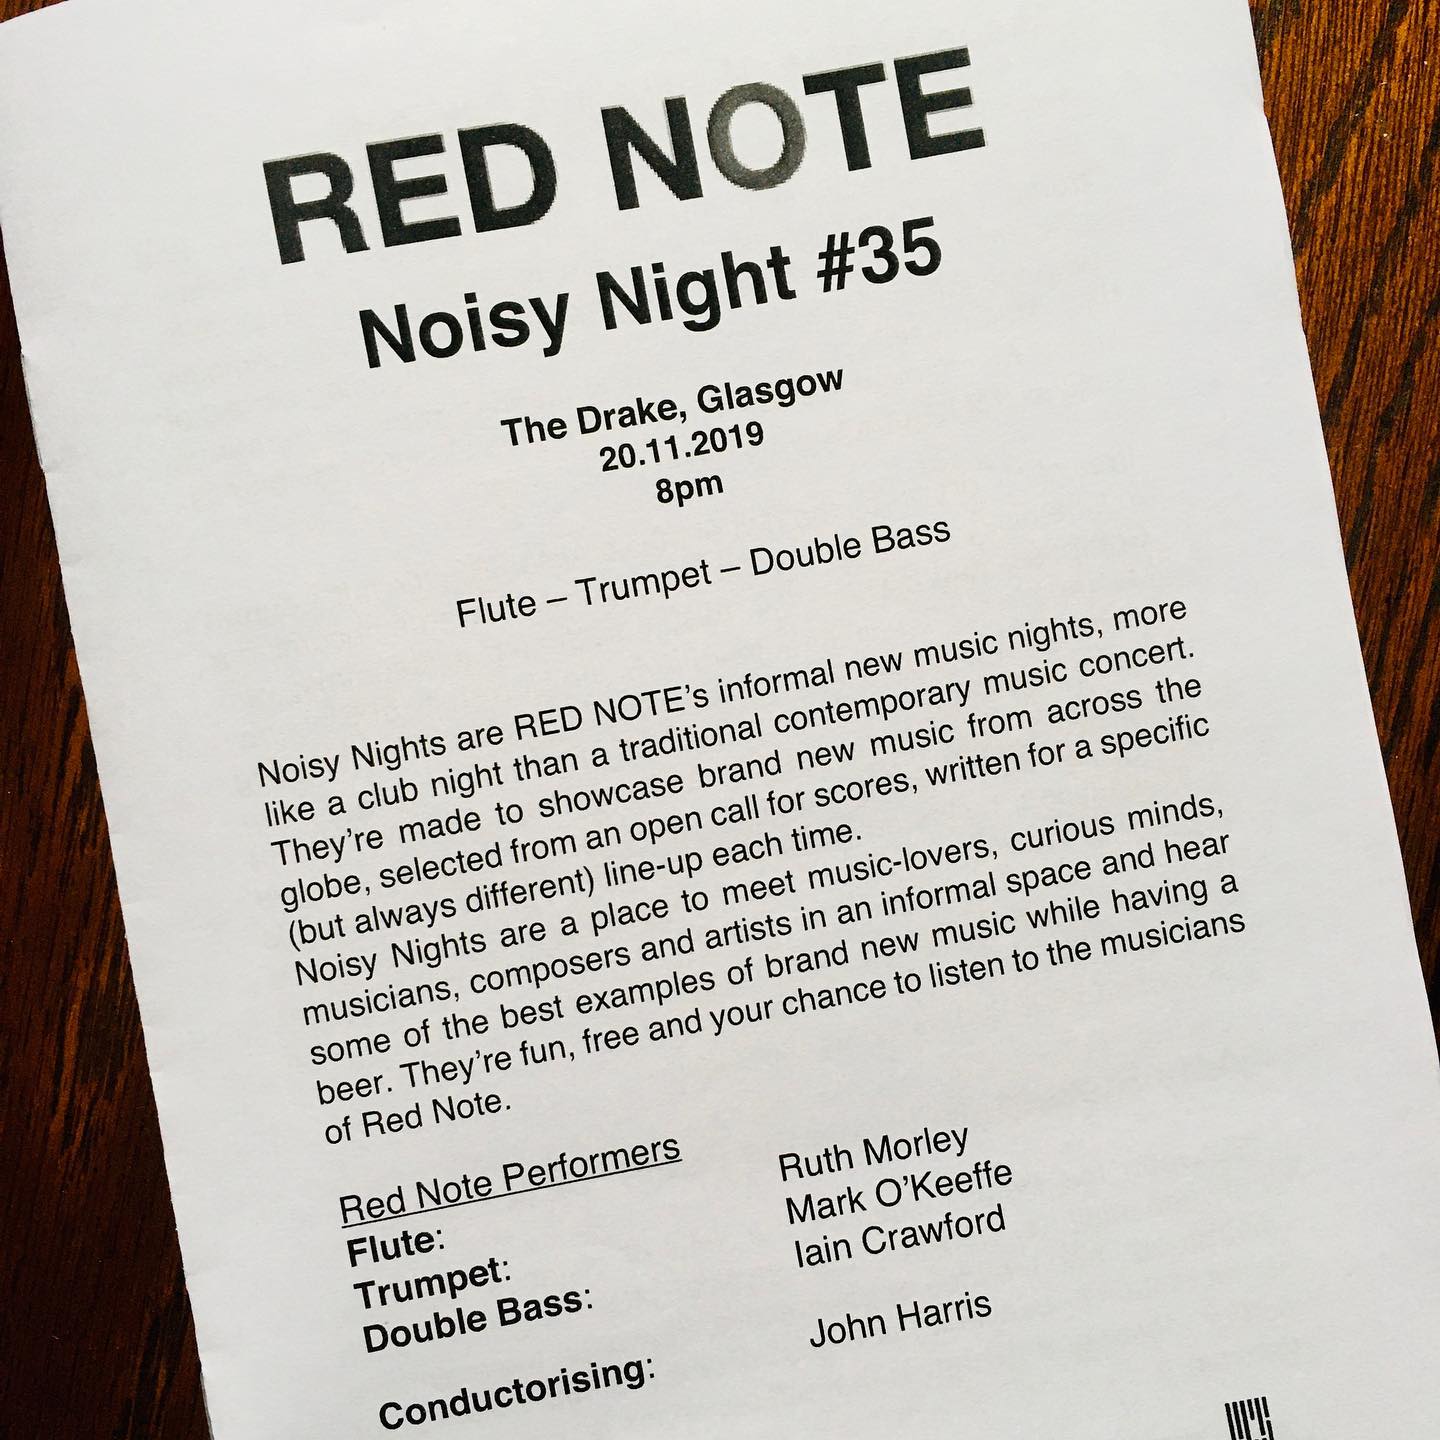 RED NOTE
Noisy Night #35
The Drake, Glasgow
20.11.2019
8pm
Flute – Trumpet – Double Bass
Noisy Nights are RED NOTE’s informal new music nights, more
like a club night than a traditional contemporary music concert.
They’re made to showcase brand new music from across the
globe, selected from an open call for scores, written for a specific
(but always different) line-up each time.
Noisy Nights are a place to meet music-lovers, curious minds,
musicians, composers and artists in an informal space and hear
some of the best examples of brand new music while having a
beer. They’re fun, free and your chance to listen to the musicians
of Red Note.
Red Note Performers
Flute: Ruth Morley
Trumpet: Mark O’Keeffe
Double Bass: Iain Crawford
Conductorising: John Harris